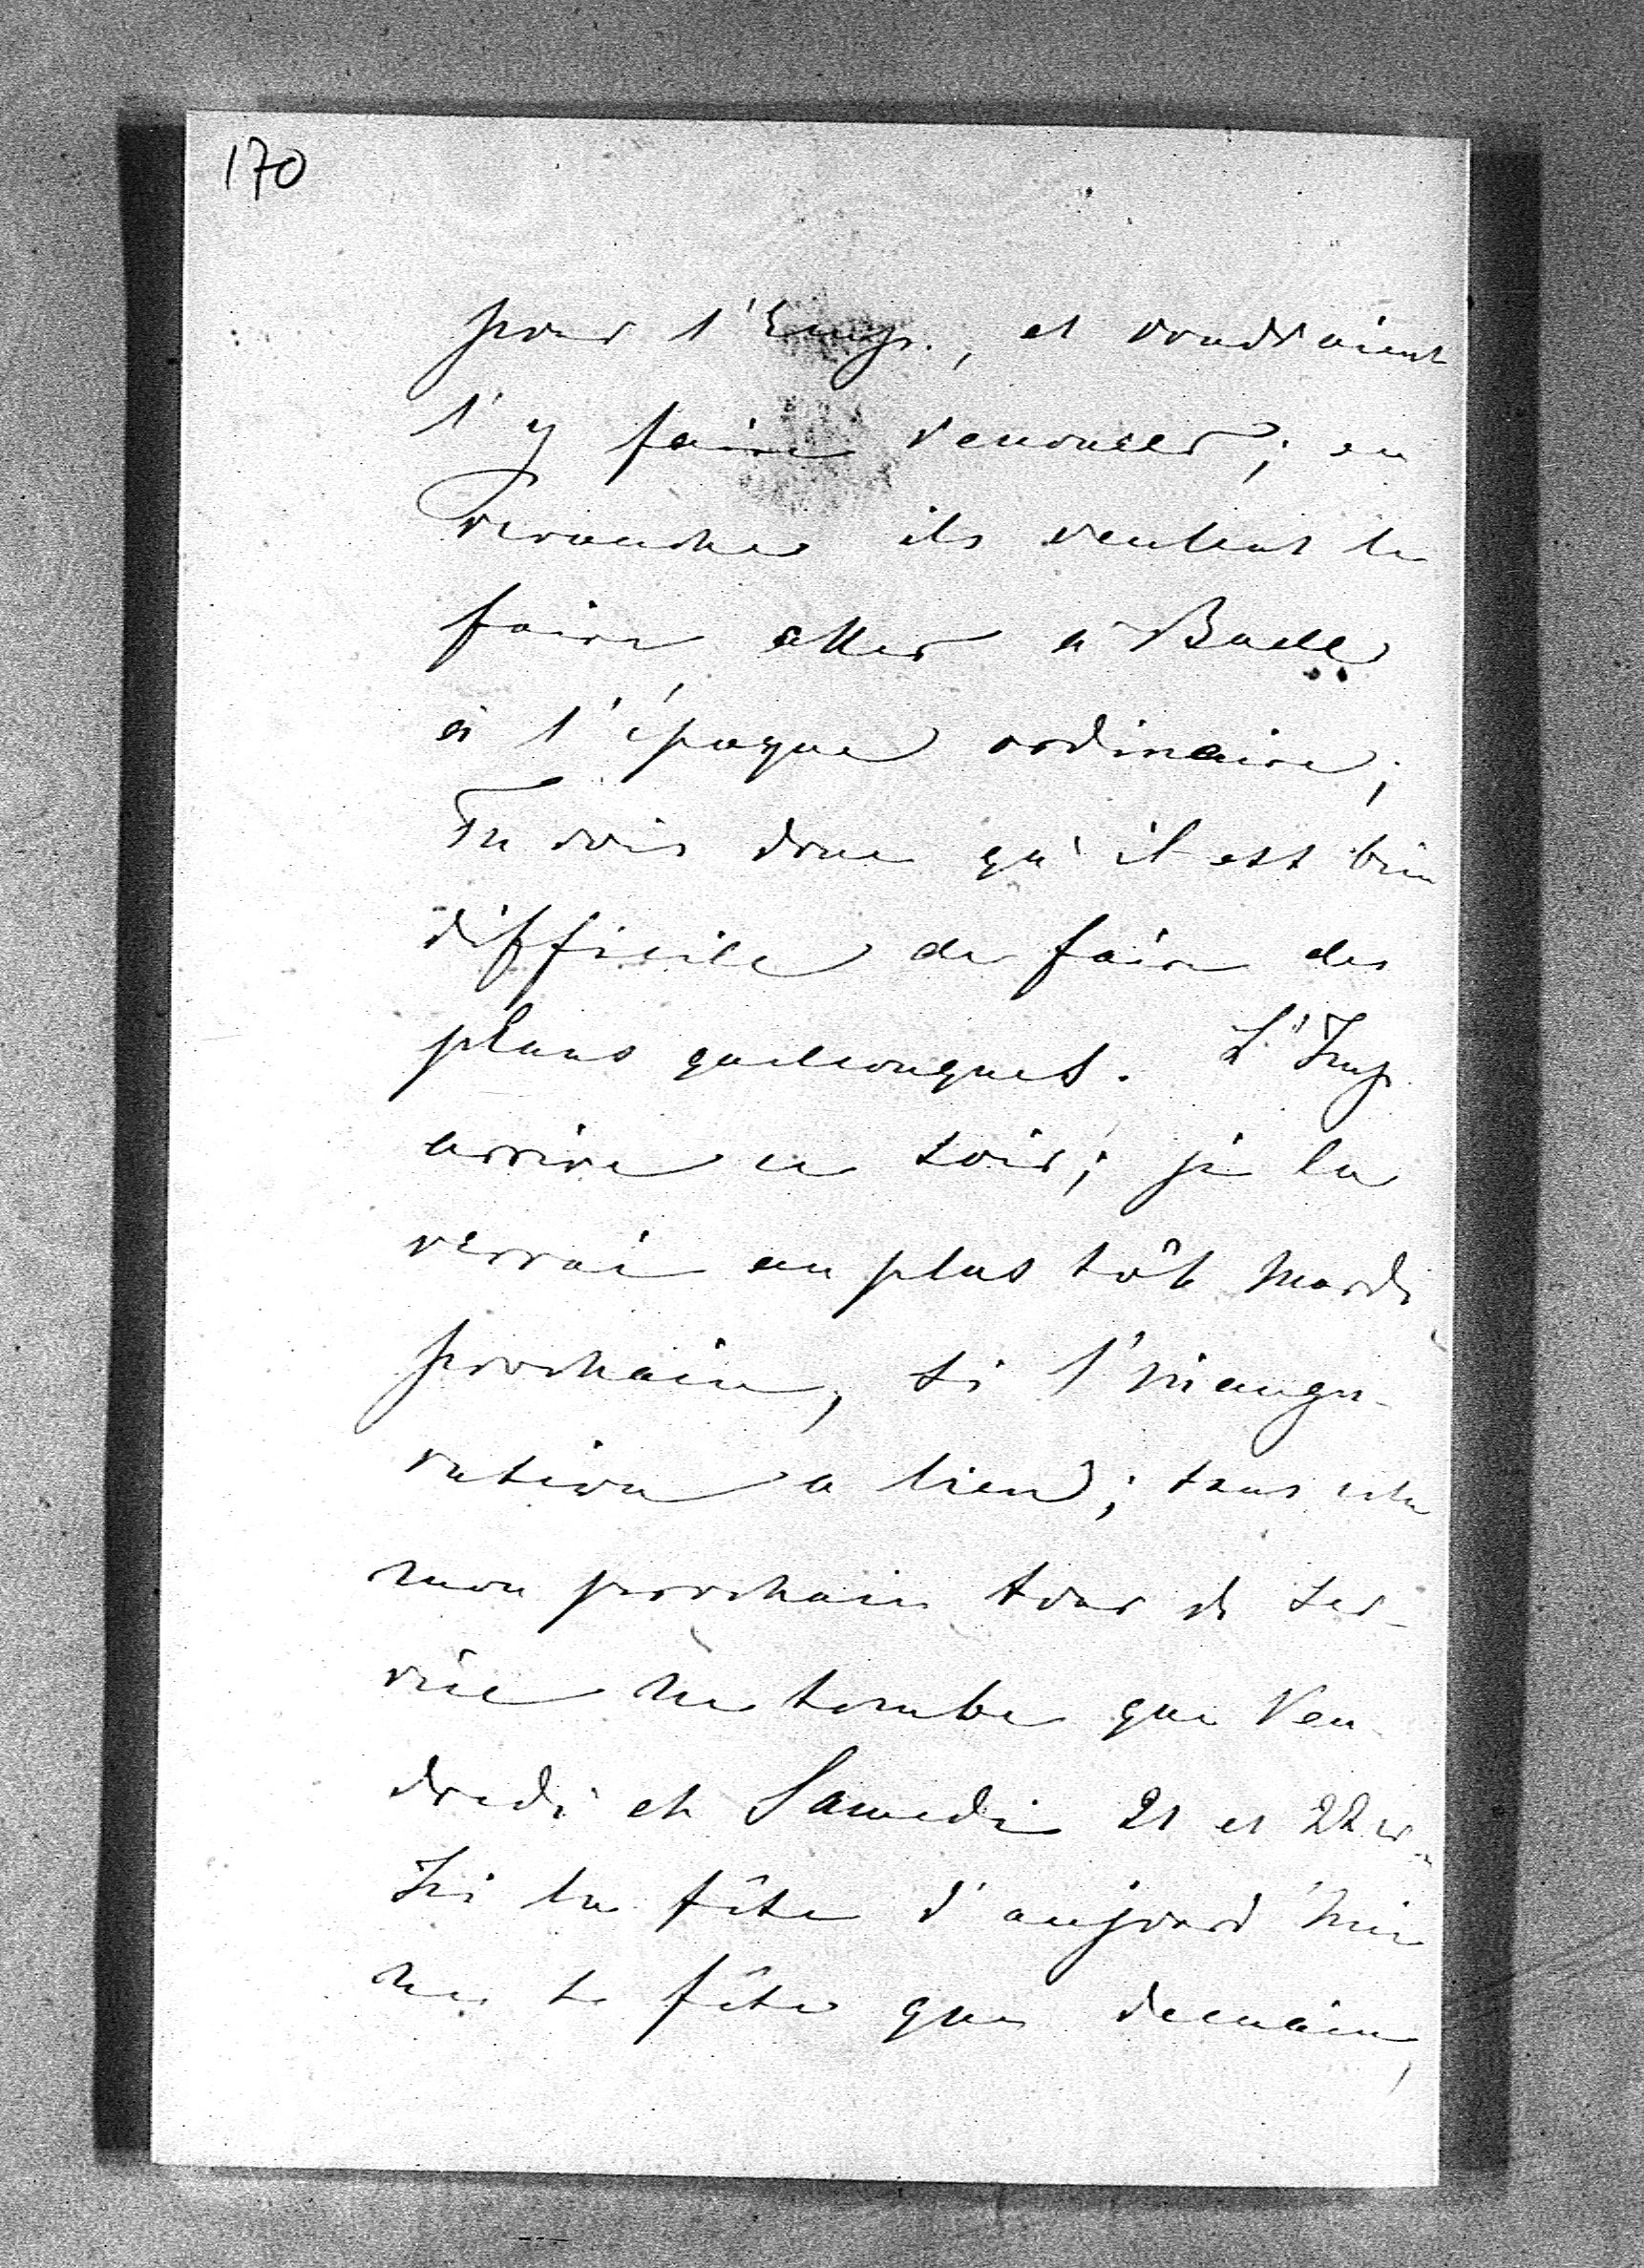 170
pour l'Emp., et voudraient
l'y faire renoncer; en
revanche ils veulent le
faire aller à Bade
à l'époque ordinaire;
Tu vois donc qu'il est bien
difficile de faire des
plans quelconques. L'Imp.
arrive ce soir; je la
verrai au plus tôt Mardi
prochain, si l'inaugu-
ration a lieu; sans cela
mon prochain tour de ser-
vice ne tombe que Ven-
dredi et Samedi 21 et 22 cr.
Ici la fête d'aujourd'hui
ne se fête que demain,